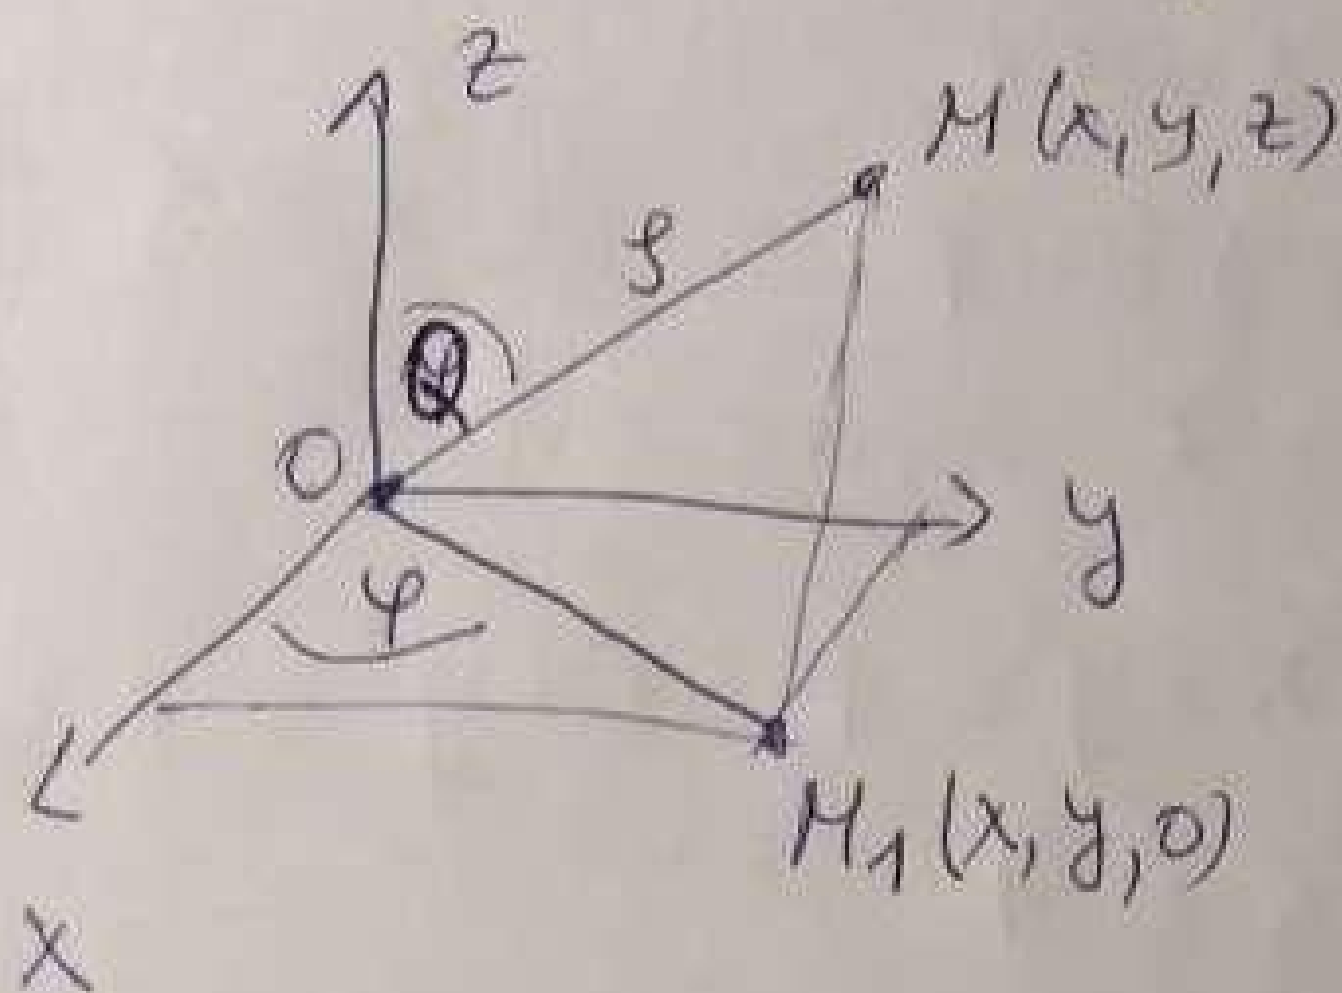 z
M (x, y, z)
ρ
θ
O
y
φ
M₁ (x, y, 0)
x